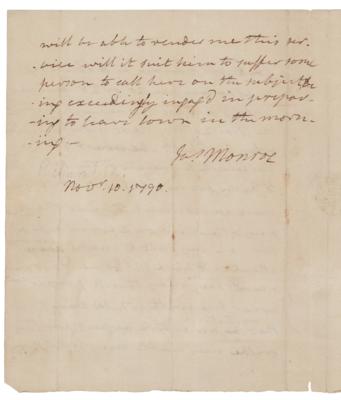 will be able to render me this ser-
-vice will it suit him to suffer some
person to call here on the subject, be
ing exceedingly ingag'd in prepar-
ing to leave town in the morn-
ing -
Jas Monroe
Novr. 10. 1790.